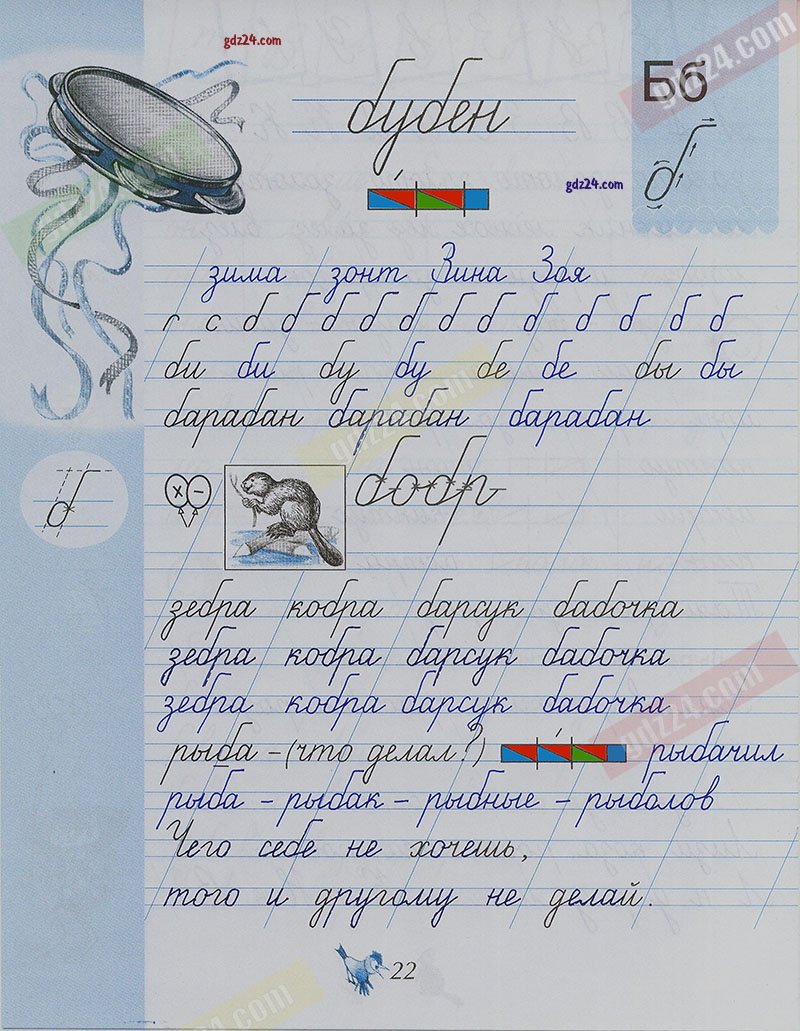 gdz24.com
Бб
бубен
gdz24.com
зима зонт Зина Зоя
г с б б б б б б б б б б б б
би би бу бу бе бе бы бы
барабан барабан барабан
х –
бобр
зебра кобра барсук бабочка
зебра кобра барсук бабочка
зебра кобра барсук бабочка
рыба – (что делал?) рыбачил
рыба – рыбак – рыбные – рыболов
Чего себе не хочешь,
того и другому не делай.
22